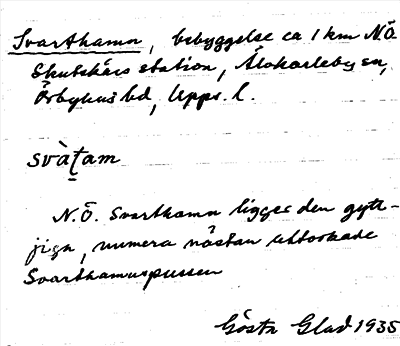 Svarthamn, bebyggelse ca 1 km N.Ö.
Skutskärs station, Älvkarleby sn,
Örbyhus hd, Upps. l.
svàṱam
N.Ö. Svarthamn ligger den gytt-
jiga, numera nästan uttorkade
Svarthamnspussen
Gösta Glad 1935